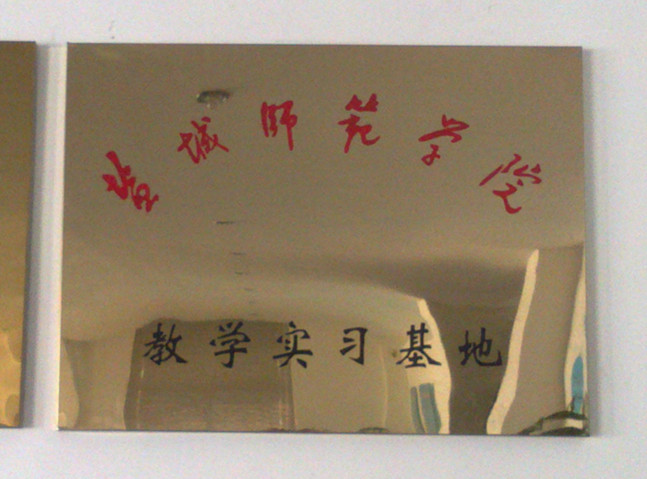 盐城师范学院
教学实习基地